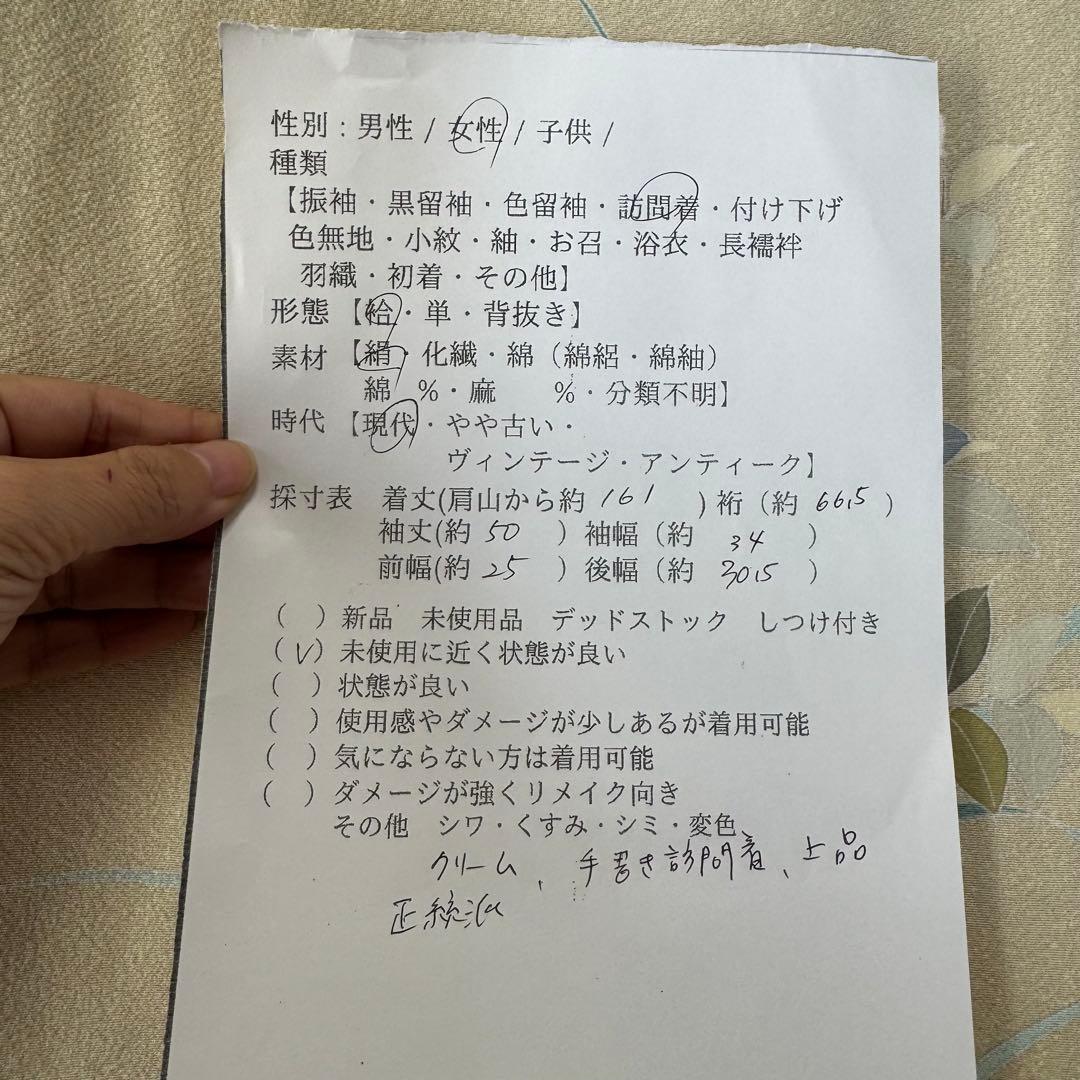 性別：男性 / 女性 / 子供 /
種類
【振袖・黒留袖・色留袖・訪問着・付け下げ
色無地・小紋・紬・お召・浴衣・長襦袢
羽織・初着・その他】
形態【袷・単・背抜き】
素材【絹・化繊・綿（綿絽・綿紬）
綿　％・麻　　％・分類不明】
時代【現代・やや古い・
ヴィンテージ・アンティーク】
採寸表　着丈(肩山から約 161 ) 裄（約 66.5 ）
袖丈(約 50 ）袖幅（約 34 ）
前幅(約 25 ）後幅（約 30.5 ）
（ ）新品　未使用品　デッドストック　しつけ付き
（V）未使用に近く状態が良い
（ ）状態が良い
（ ）使用感やダメージが少しあるが着用可能
（ ）気にならない方は着用可能
（ ）ダメージが強くリメイク向き
その他　シワ・くすみ・シミ・変色
クリーム、手書き訪問着、上品
正統派